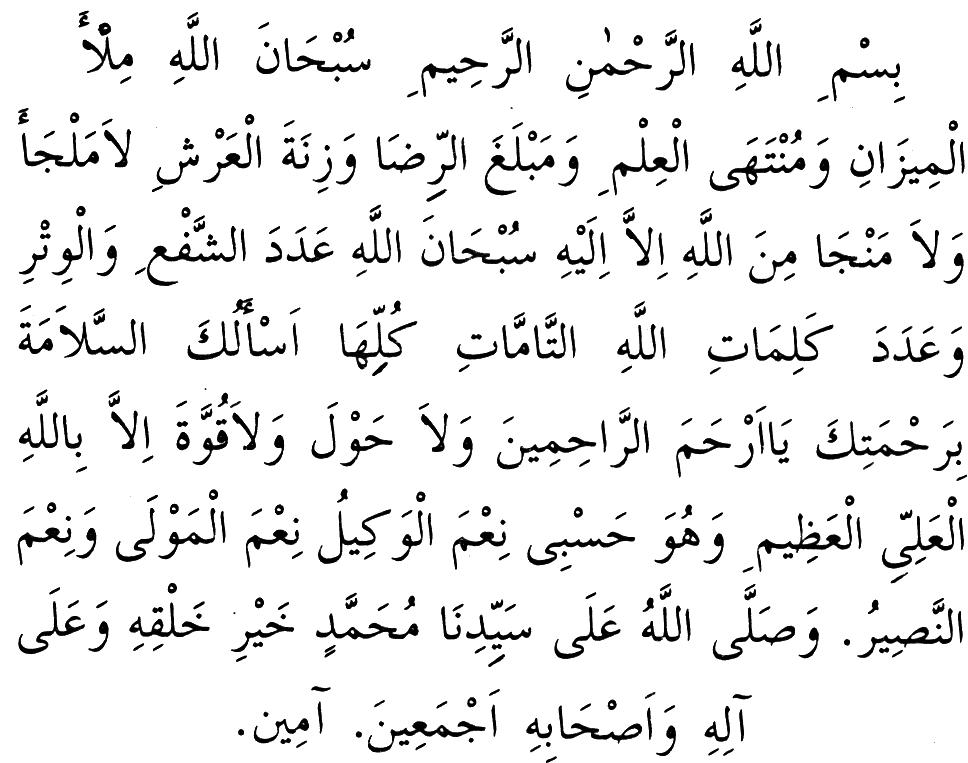 بِسْمِ اللَّهِ الرَّحْمٰنِ الرَّحِيمِ سُبْحَانَ اللَّهِ مِلْأَ
الْمِيزَانِ وَمُنْتَهَى الْعِلْمِ وَمَبْلَغَ الرِّضَا وَزِنَةَ الْعَرْشِ لاَمَلْجَأَ
وَلاَ مَنْجَا مِنَ اللَّهِ اِلاَّ اِلَيْهِ سُبْحَانَ اللَّهِ عَدَدَ الشَّفْعِ وَالْوِتْرِ
وَعَدَدَ كَلِمَاتِ اللَّهِ التَّامَّاتِ كُلِّهَا اَسْأَلُكَ السَّلاَمَةَ
بِرَحْمَتِكَ يَااَرْحَمَ الرَّاحِمِينَ وَلاَ حَوْلَ وَلاَقُوَّةَ اِلاَّ بِاللَّهِ
الْعَلِيِّ الْعَظِيمِ وَهُوَ حَسْبِى نِعْمَ الْوَكِيلُ نِعْمَ الْمَوْلَى وَنِعْمَ
النَّصِيرُ. وَصَلَّى اللَّهُ عَلَى سَيِّدِنَا مُحَمَّدٍ خَيْرِ خَلْقِهِ وَعَلَى
آلِهِ وَاَصْحَابِهِ اَجْمَعِينَ. آمِين.